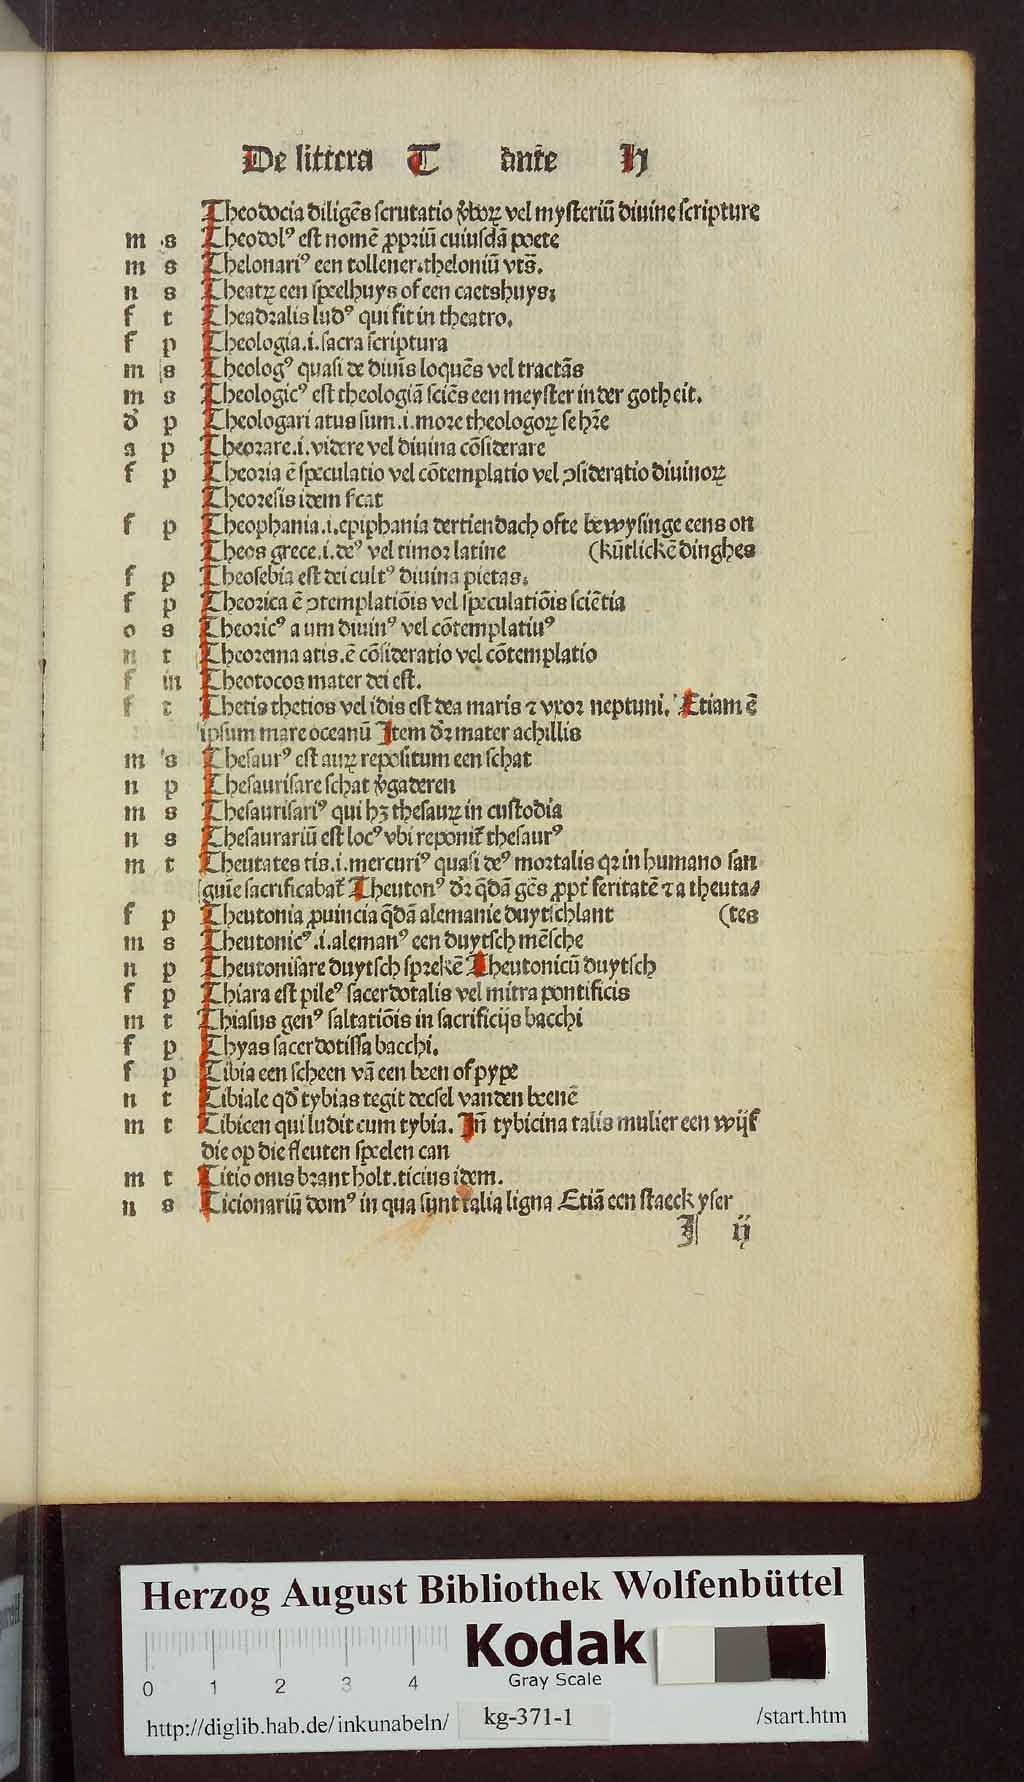 De littera T ante H
Theodocia diligēs scrutatio v̄boꝝ vel mysteriū diuine scripture
m s Theodolꝰ est nomē ꝓpriū cuiusdā poete
m s Thelonariꝰ een tollener.theloniū vts̄.
n s Theatꝝ een speelhuys of een caetshuys;
f t Theadralis ludꝰ qui fit in theatro.
f p Theologia.i.sacra scriptura
m s Theologꝰ quasi de diuīs loquēs vel tractās
m s Theologicꝰ est theologiā sciēs een meyster in der gotheit.
d̓ p Theologari atus sum.i.more theologoꝝ se hr̄e
a p Theorare.i.videre vel diuina cōsiderare
f p Theoria ē speculatio vel cōtemplatio vel ↄsideratio diuinoꝝ
Theoresis idem s̄cat
f p Theophania.i.epiphania dertiendach ofte bewysinge eens on
Theos grece.i.deꝰ vel timor latine (kūtlickē dinghes
f p Theosebia est dei cultꝰ diuina pietas;
f p Theorica ē ↄtemplatiōis vel speculatiōis sciētia
o s Theoricꝰ a um diuinꝰ vel cōtemplatiuꝰ
n t Theorema atis.ē cōsideratio vel cōtemplatio
f in Theotocos mater dei est.
f t Thetis thetios vel idis est dea maris ⁊ vxor neptuni. Etiam ē
ipsum mare oceanū Item d̓r mater achillis
m s Thesaurꝰ est auꝝ repositum een schat
n p Thesaurisare schat v̄gaderen
m s Thesaurisariꝰ qui hꝫ thesauꝝ in custodia
n s Thesaurariū est locꝰ vbi reponit̄ thesaurꝰ
m t Theutates tis.i.mercuriꝰ quasi deꝰ mortalis qꝛ in humano san
guīe sacrificabat̄ Theutonꝰ d̓r q̄dā gēs ꝓpt̓ feritatē ⁊ a theuta⸗
f p Theutonia ꝓuincia q̄dā alemanie duytschlant (tes
m s Theutonicꝰ.i.alemanꝰ een duytsch mēsche
n p Theutonisare duytsch sprekē Theutonicū duytsch
f p Thiara est pileꝰ sacerdotalis vel mitra pontificis
m t Thiasus genꝰ saltatiōis in sacrificijs bacchi
f p Thyas sacerdotissa bacchi.
f p Tibia een scheen vā een been of pype
n t Tibiale qd̓ tybias tegit decsel vanden beenē
m t Tibicen qui ludit cum tybia. In̄ tybicina talis mulier een wijf
die op die fleuten speelen can
m t Titio onis brant holt.ticius idem.
n s Ticionariū domꝰ in qua sunt talia ligna Etiā een staeck yser
I ij
Herzog August Bibliothek Wolfenbüttel
0 1 2 3 4
Kodak
Gray Scale
http://diglib.hab.de/inkunabeln/ kg-371-1 /start.htm